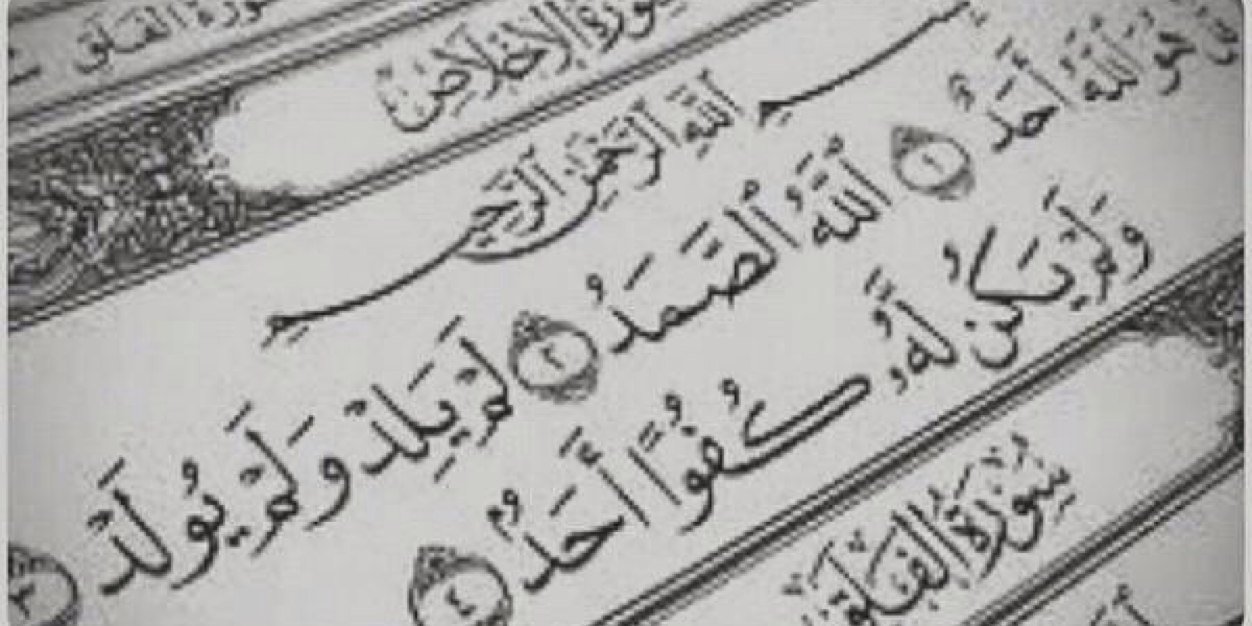 سورة الفلق
سُورَةُ الإِخْلَاصِ
بِسْمِ اللَّهِ الرَّحْمَٰنِ الرَّحِيمِ
هُوَ ٱللَّهُ أَحَدٌ ١ ٱللَّهُ ٱلصَّمَدُ ٢ لَمْ يَلِدْ وَلَمْ يُولَدْ ٣
وَلَمْ يَكُن لَّهُۥ كُفُوًا أَحَدٌۢ ٤
سُورَةُ الفَلَقِ